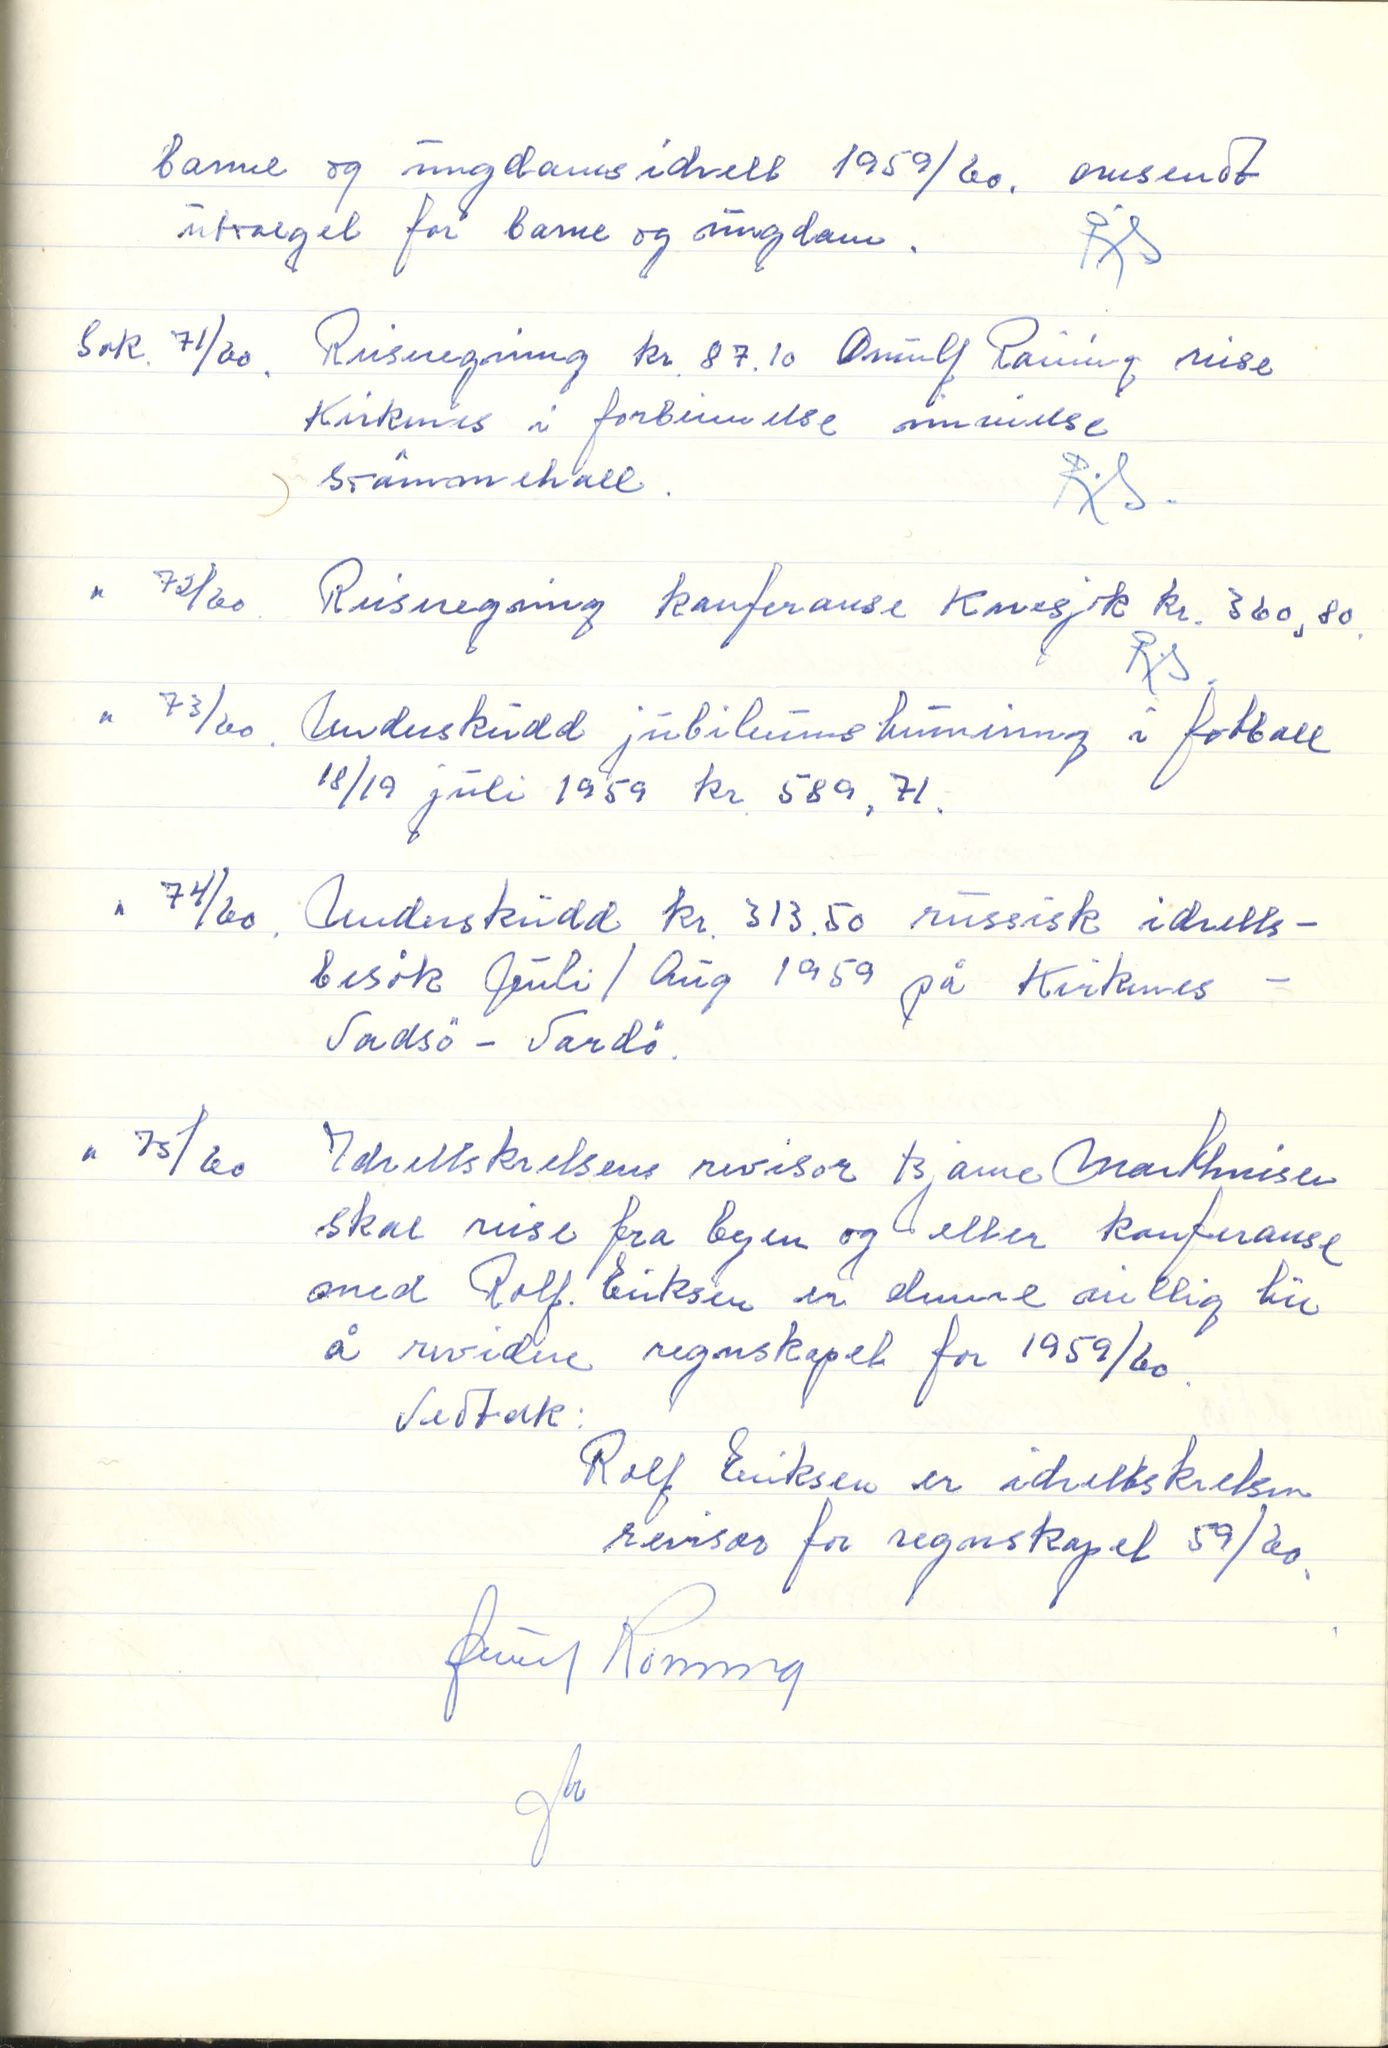 barne og ungdomsidrett 1959/60. omsendt
utvalget for barne og ungdom. R.S
Sak. 71/60. Reiseregning kr. 87.10 Ornulf Röning reise
Kirkenes i forbinnelse innvielse
svömmehall. R.S.
" 72/60 Reiseregning konferanse Karasjok kr. 360,80.
R.S.
" 73/60. Underskudd jubileumsturnering i fotball
18/19 juli 1959 kr. 589,71.
" 74/60. Underskudd kr. 313.50 russisk idretts-
besök Juli/Aug 1959 på Kirkenes -
Vadsö - Vardö.
" 75/60 Idrettskretsens revisor Bjarne Markhusen
skal reise fra byen og etter konferanse
med Rolf. Eriksen er denne villig til
å revidere regnskapet for 1959/60.
Vedtak:
Rolf Eriksen er idrettskretsen
revisor for regnskapet 59/60.
Ornulf Röning